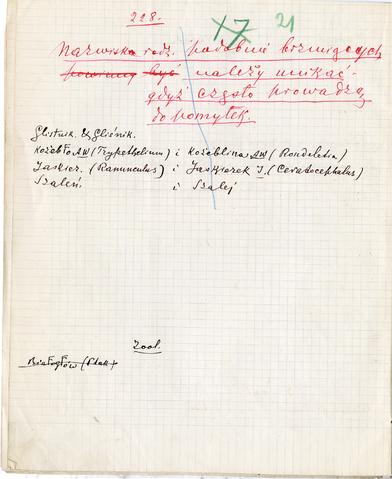 228.
X7 21
Nazwisko rodz. podobnie brzmiących
powinny być należy unikać
gdyż często prowadzą
do pomyłek.
Glistnik & Gliśnik.
Koźebło AW (Trypethelium) i Koźeblina AW (Rondeletia)
Jaskier. (Ranunculus) i Jaskierek J. (Ceratocephalus)
Szaleń i Szalej
Zool.
Białogłów (Ptak)